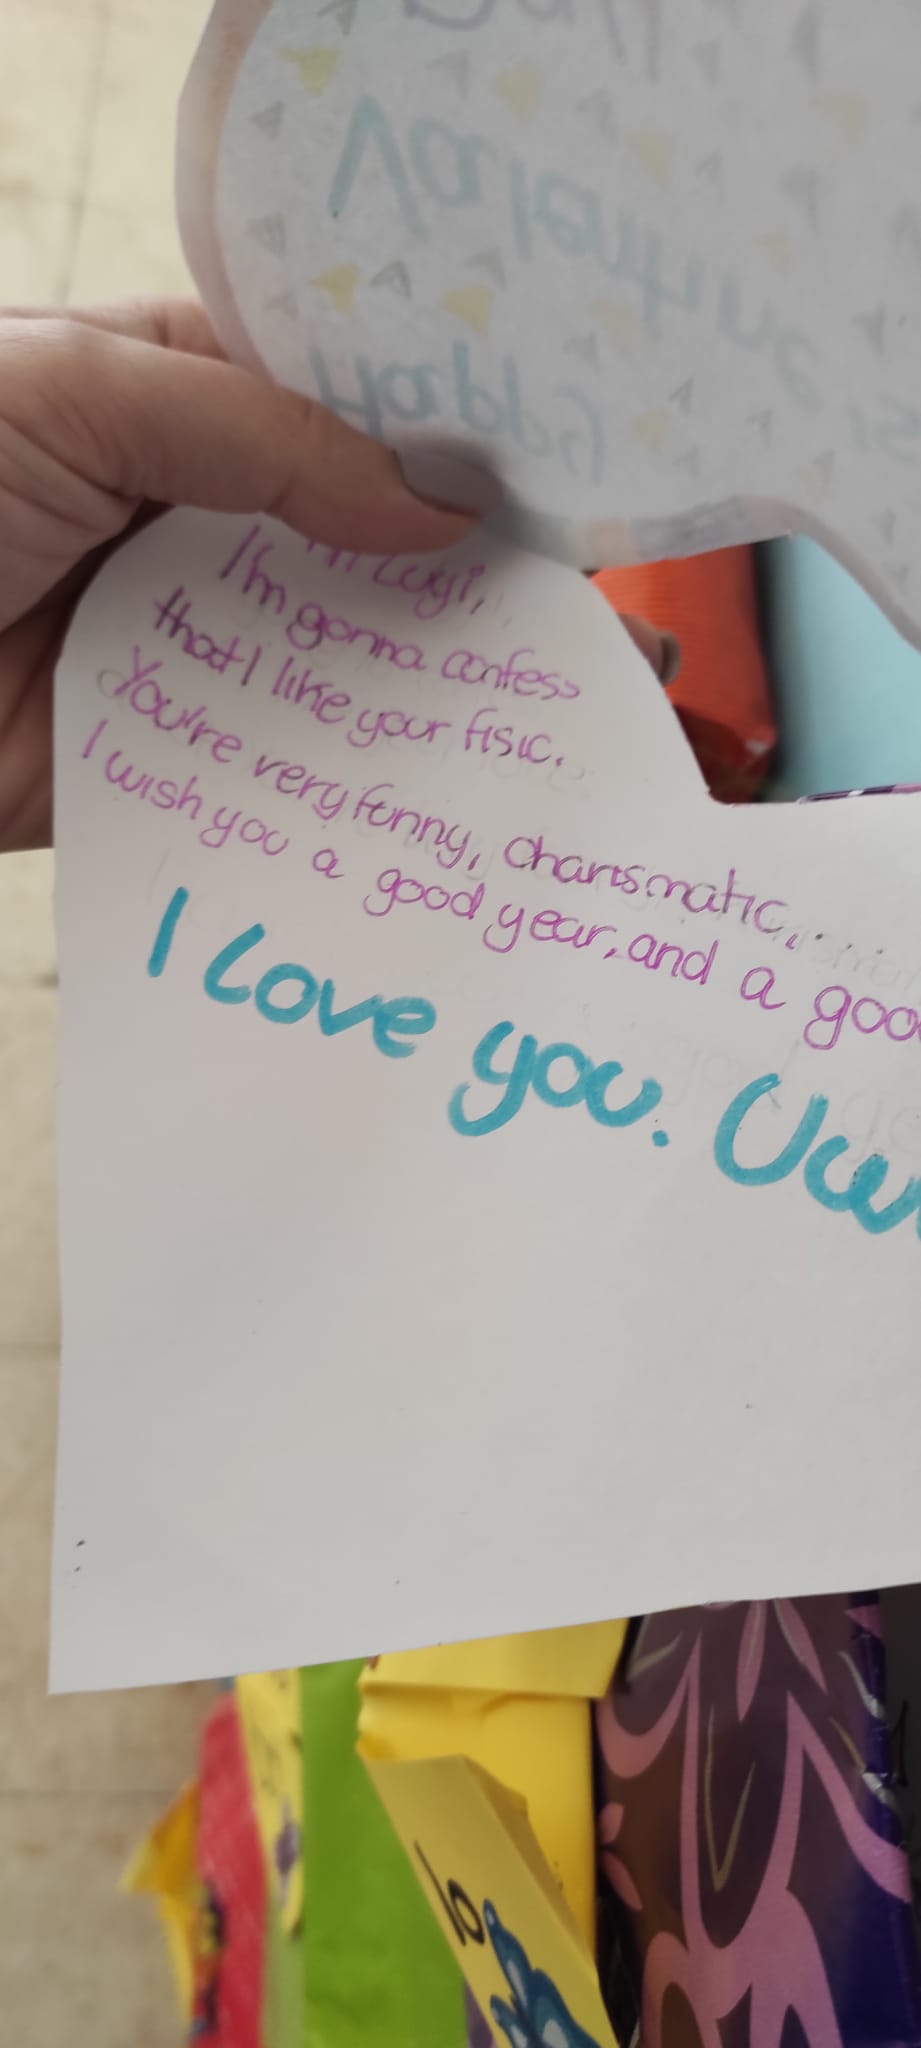 Valentine's
Happy
Luyi,
I'm gonna confess
that I like your fisic.
You're very funny, charismatic,..
I wish you a good year, and a good
I Love you. Uwu
lo